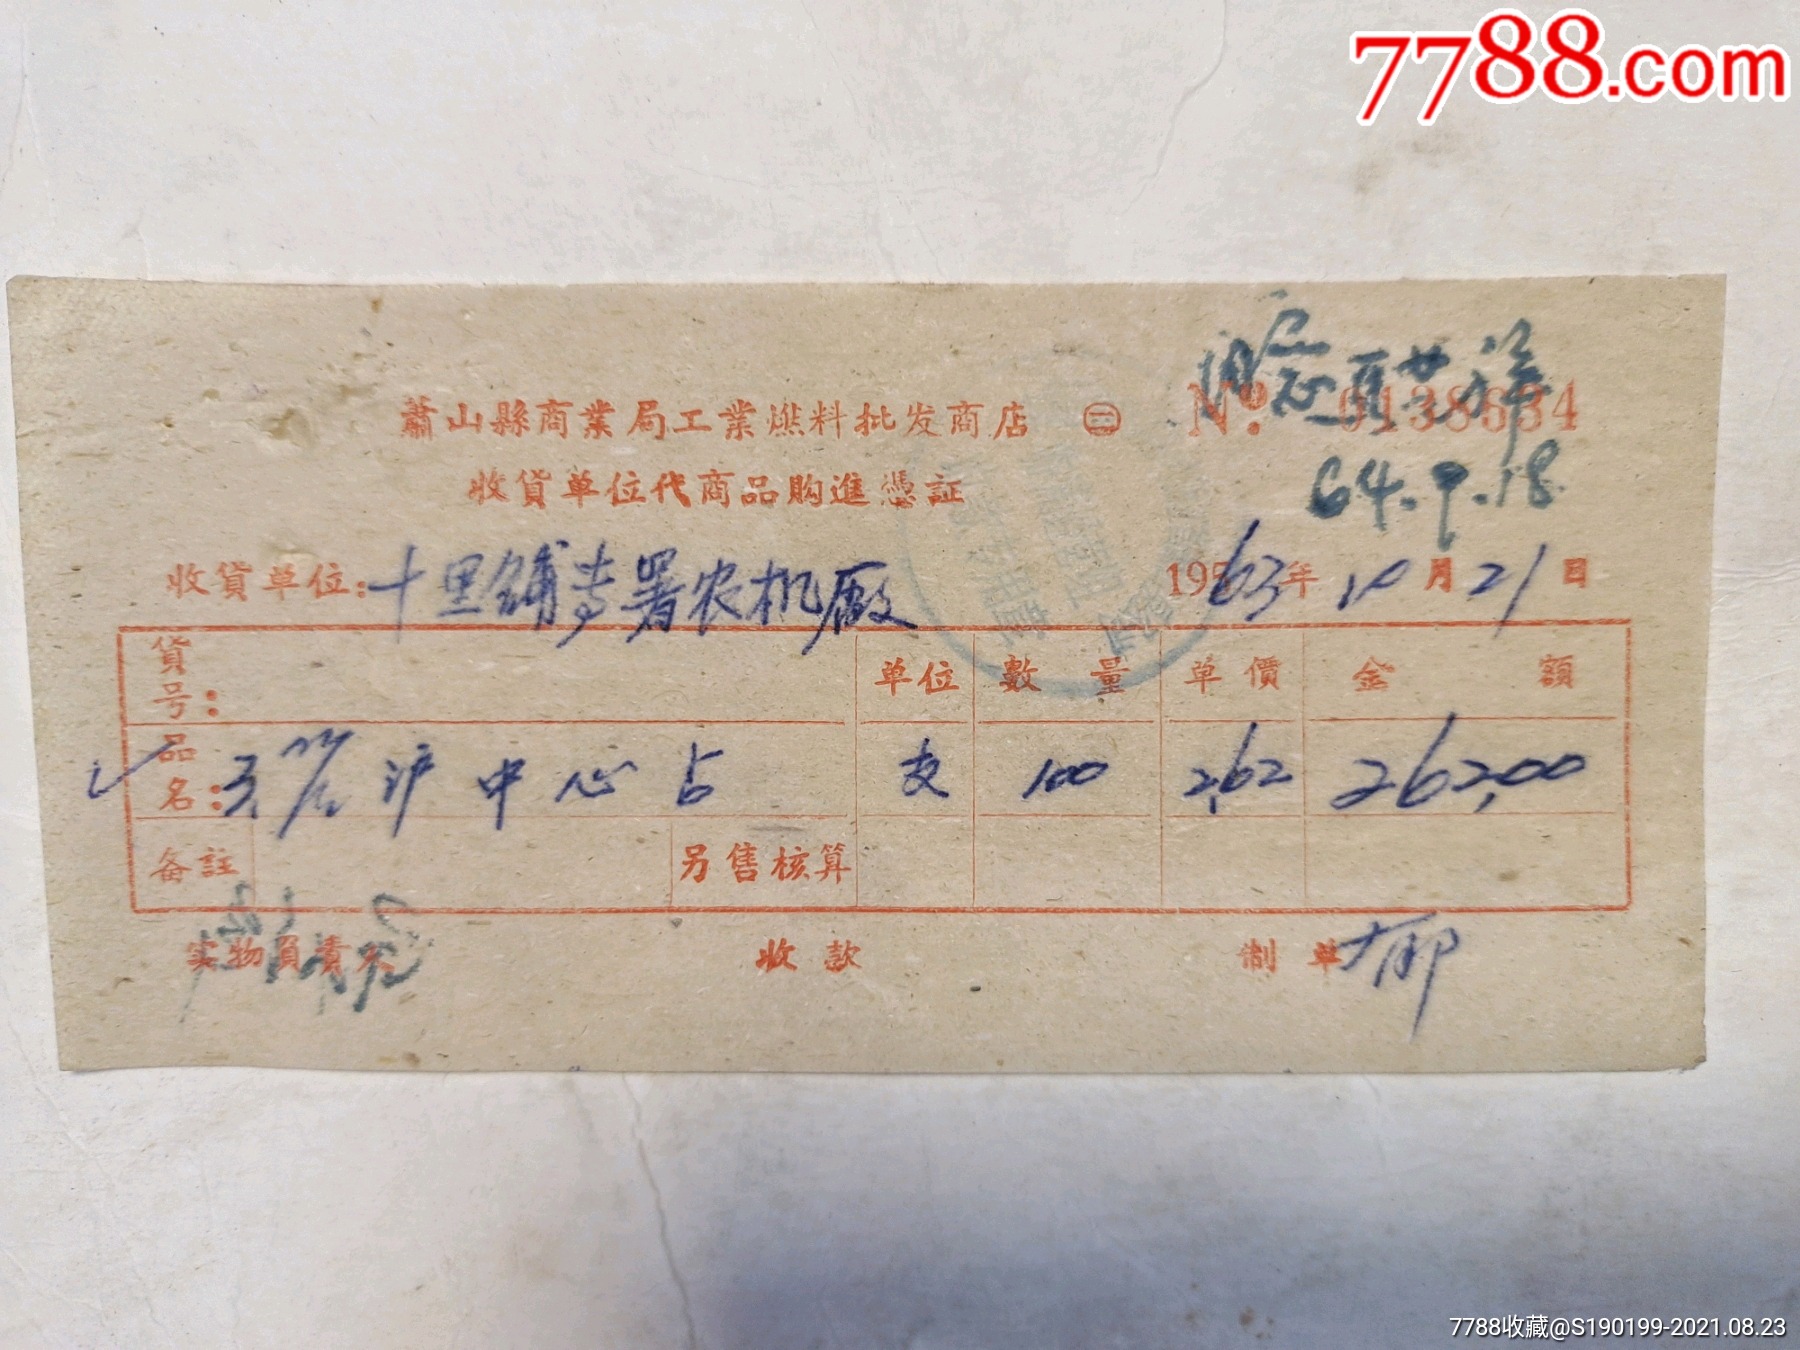 7788.com
蕭山縣商業局工業燃料批发商店 ㊂ No. 0138634
收貨单位代商品购進憑証
64.9.18
收貨单位:十里铺专署农机廠 1963年10月21日
貨号: 单位 數量 单價 金額
品名: 沪中心占 支 100 2.62 262.00
备註 另售核算
实物負責人 收款 制单 郁
7788收藏@S190199-2021.08.23